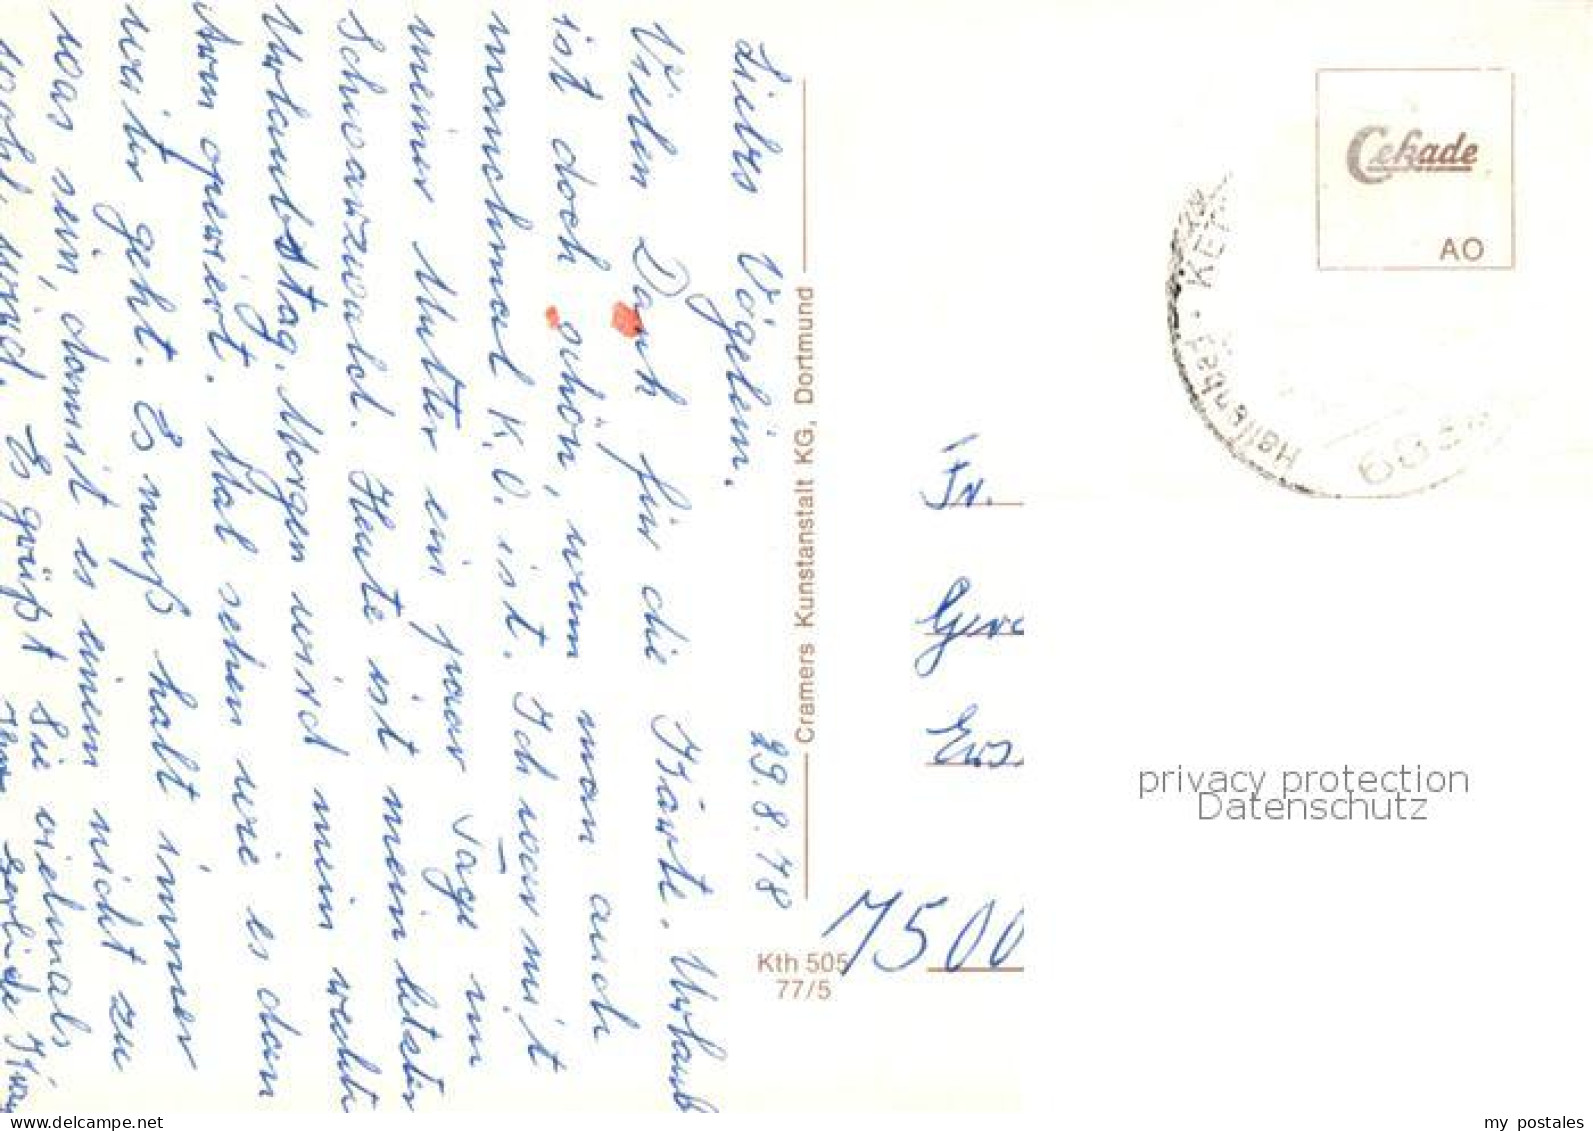 29.8.78
Liebes Vögelein.
Vielen Dank für die Karte. Urlaub
ist doch schön, wenn man auch
manchmal K.O. ist. Ich war mit
meiner Mutter ein paar Tage im
Schwarzwald. Heute ist mein letzter
Urlaubstag. Morgen wird mein rechter
Arm operiert. Mal sehen wie es dann
weiter geht. Es muß halt immer
was sein, damit es einem nicht zu
wohl wird. Es grüßt Sie vielmals
Ihre
Cramers Kunstanstalt KG, Dortmund
Kth 505
77/5
Cekade
AO
Hallenbad
Fr.
7500
privacy protection
Datenschutz
my_postales